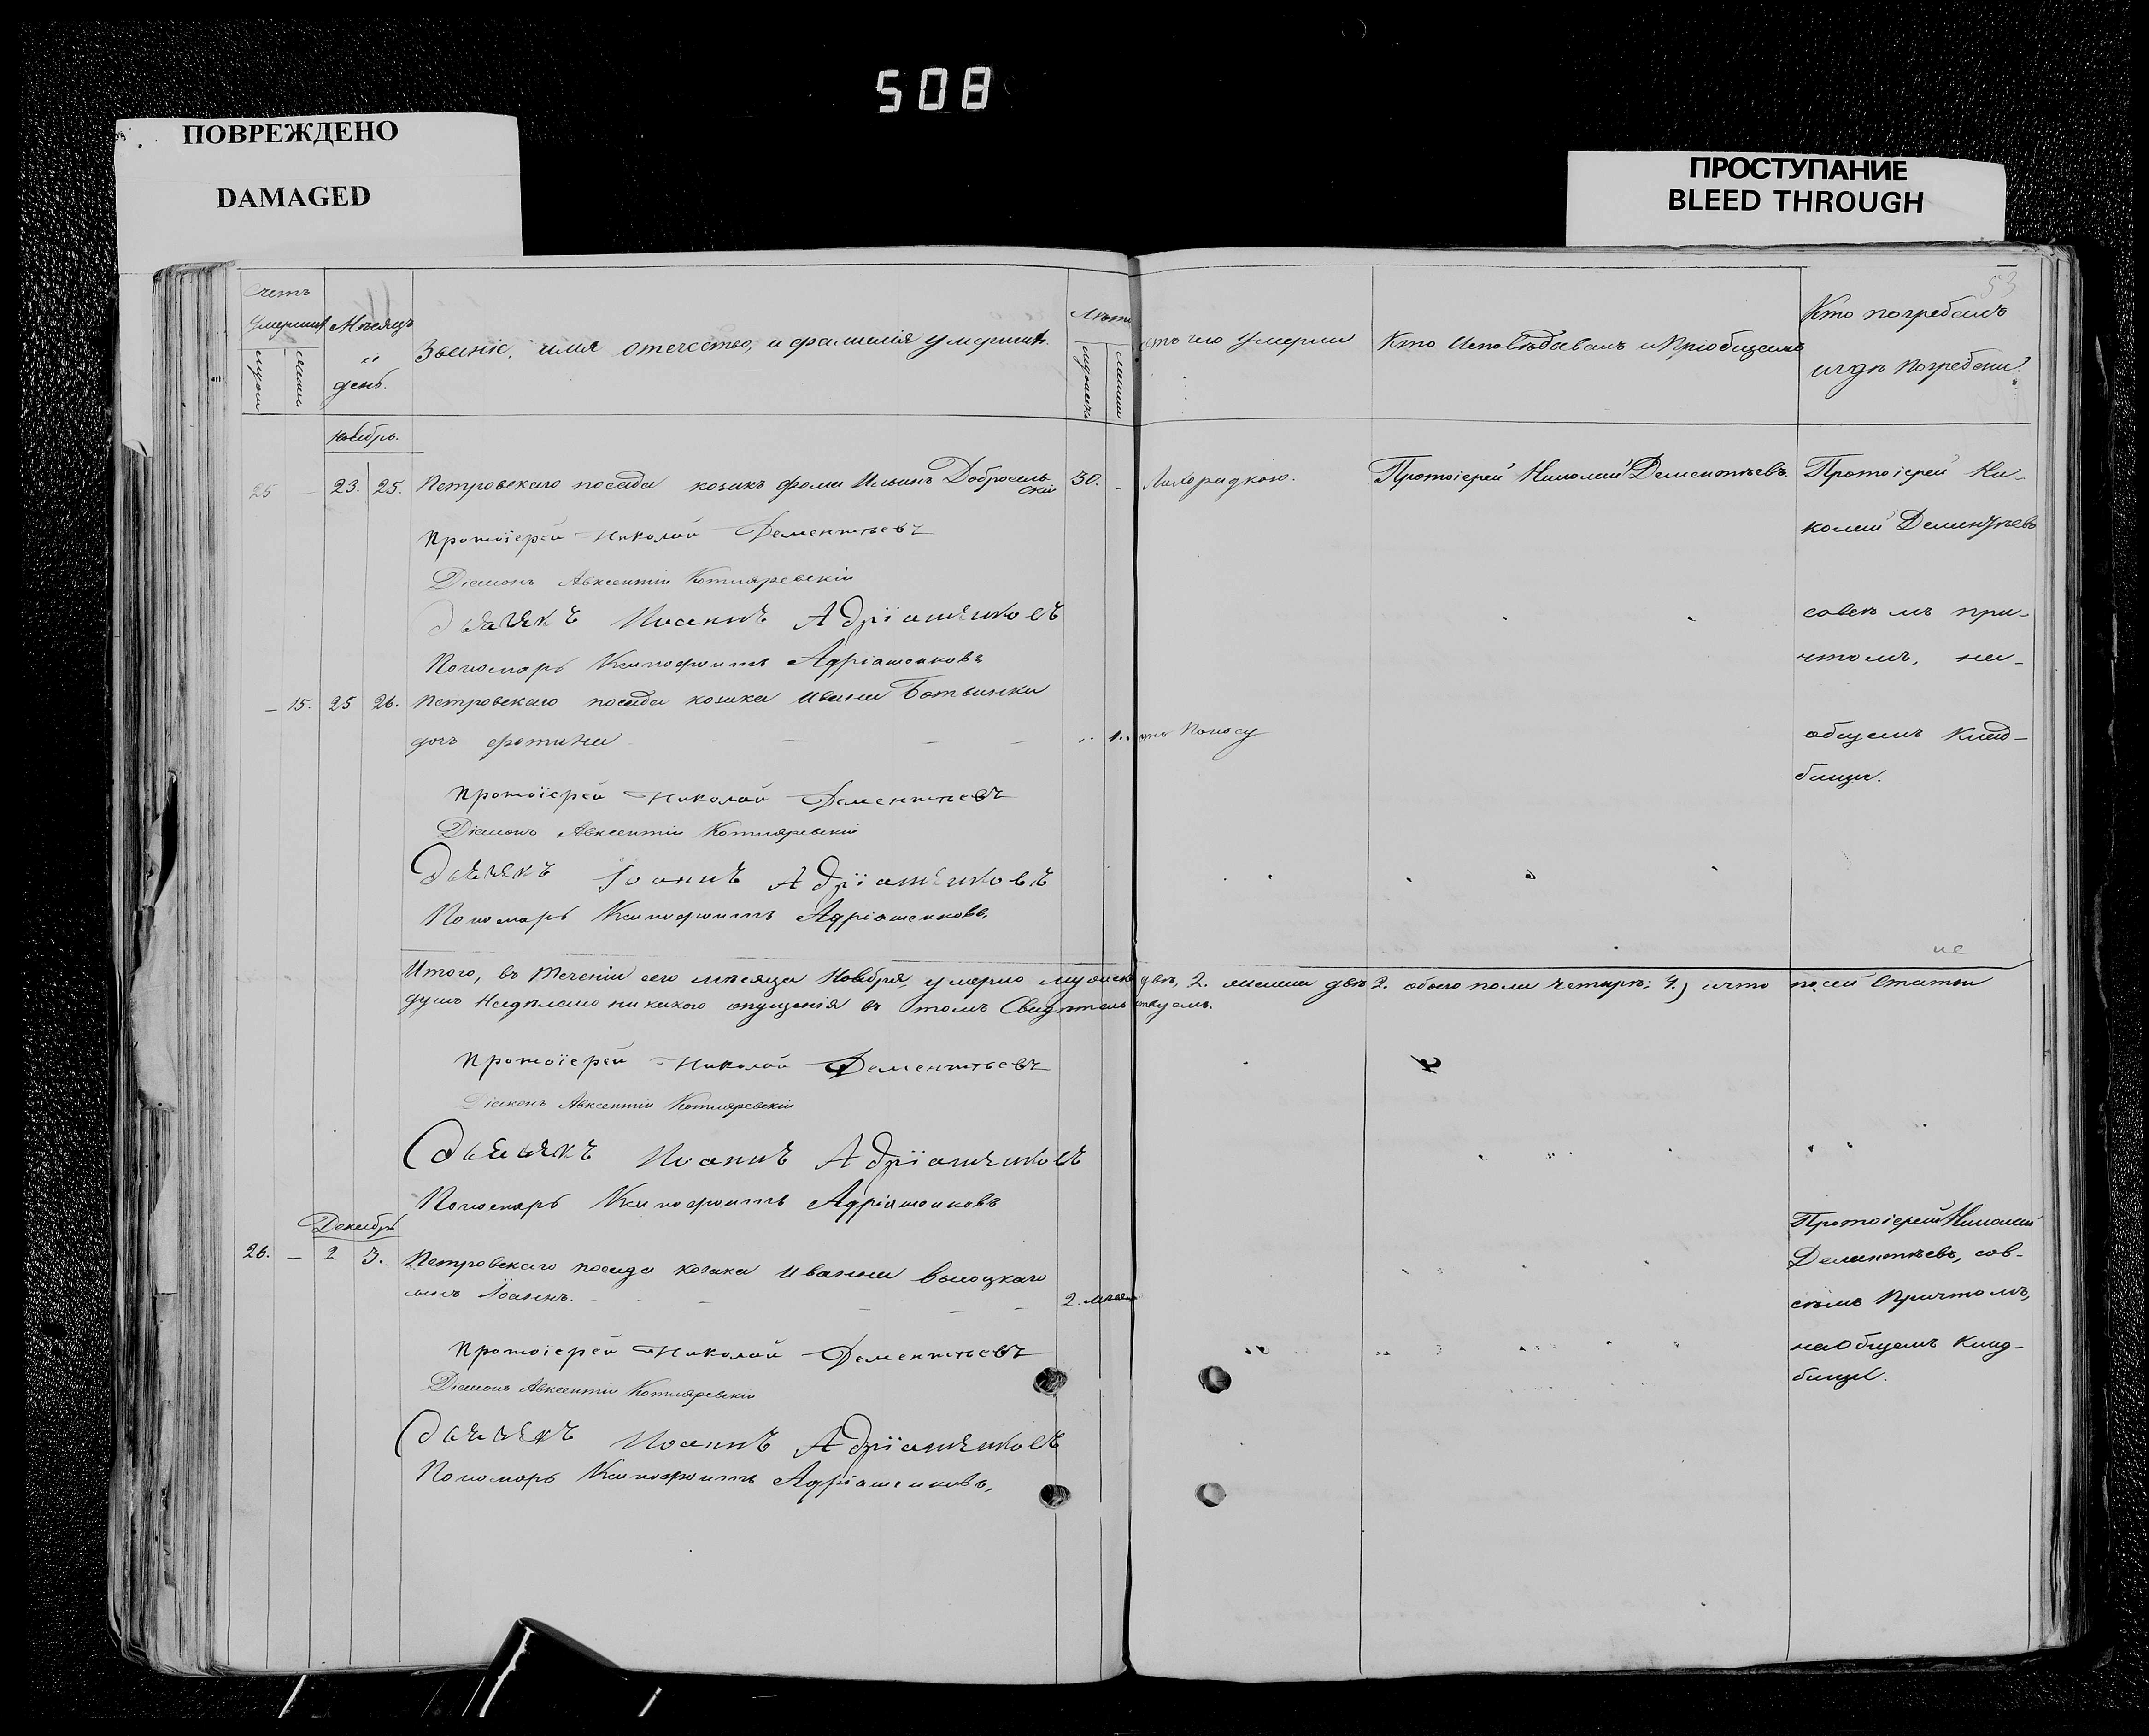 508
ПОВРЕЖДЕНО
DAMAGED
ПРОСТУПАНИЕ
BLEED THROUGH
53
Счетъ
умершихъ
Мѣсяцъ
и
день.
Званіе, имя отечество, и фамилія умершихъ.
Лѣта
отъ чего умерли
Кто Исповѣдавалъ и Пріобщалъ
Кто погребалъ
и гдѣ Погребены?
Ноябрь.
25 — 23. 25. Петровскаго посада козакъ Фома Ильинъ Добросель
скій
30. - Лихорадкою. Протоіерей Николай Дементьевъ. Протоіерей Ни-
колай Дементьевъ
Протоіерей Николай Дементьевъ
Діаконъ Авксентій Котляревскій
Дьячекъ Иоаннъ Адріашенковъ
совсемъ при-
Пономарь Ксенофонтъ Адріашенковъ
чтомъ, на-
— 15. 25 26. Петровскаго посада козака Ивана Ботвинки
дочь Фотина 1. отъ Поносу
общемъ клад-
бищи.
Протоіерей Николай Дементьевъ
Діаконъ Авксентій Котляревскій
Дьячекъ Іоаннъ Адріашенковъ
Пономарь Ксенофонтъ Адріашенковъ,
не
Итого, въ теченіи сего мѣсяца Ноября, умерло мужеска двѣ, 2. женска двѣ 2. обоего пола четырѣ; 4.) и что по сей Статьи
душъ Недѣлано никакого опущенія въ томъ Свидѣтельствуемъ.
Протоіерей Николай Дементьевъ
Діаконъ Авксентій Котляревскій
Дьячекъ Иоаннъ Адріашенковъ
Пономарь Ксенофонтъ Адріашенковъ
Декабрь
26. — 2 3. Петровскаго посада козака Иванна Высоцкаго
сынъ Іоаннъ. 2. мѣсяц
Протоіерей Николай
Дементьевъ, сов-
сѣмъ Причтомъ,
на Общемъ клад-
бищи.
Протоіерей Николай Дементьевъ
Діаконъ Авксентій Котляревскій
Дьячекъ Иоаннъ Адріашенковъ
Пономарь Ксенофонтъ Адріашенковъ,